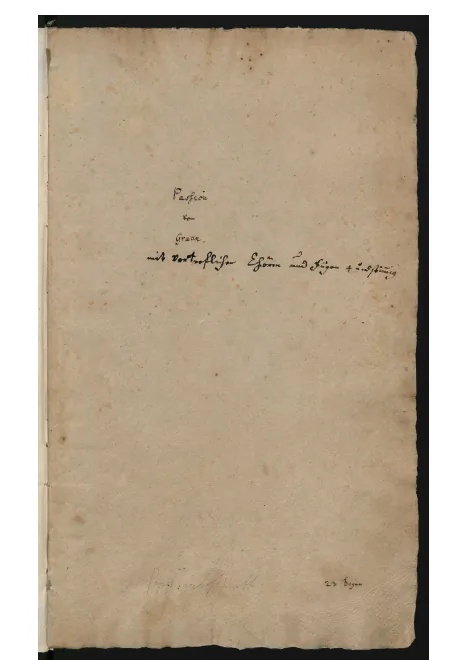 Passion
von
Graun.
mit vortreflichen Chören und Fugen
23 Bogen